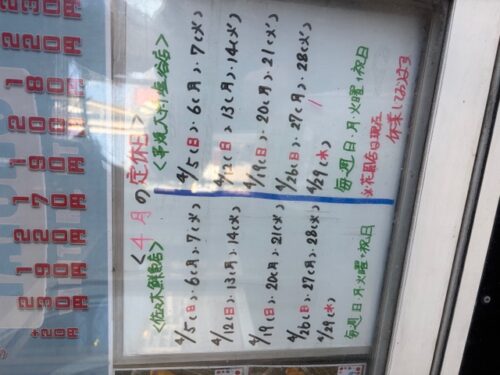 230円
220円
180円
200円
190円
170円
220円
190円
230円
+20円
<4月の定休日>
4/5(日)・6(月)・7(火)
4/12(日)・13(月)・14(火)
4/19(日)・20(月)・21(火)
4/26(日)・27(月)・28(火)
4/29(水)
毎週日・月・火曜+祝日
4/5(日)・6(月)・7(火)
4/12(日)・13(月)・14(火)
4/19(日)・20(月)・21(火)
4/26(日)・27(月)・28(火)
4/29(水)
毎週日・月・火曜+祝日
休業しております